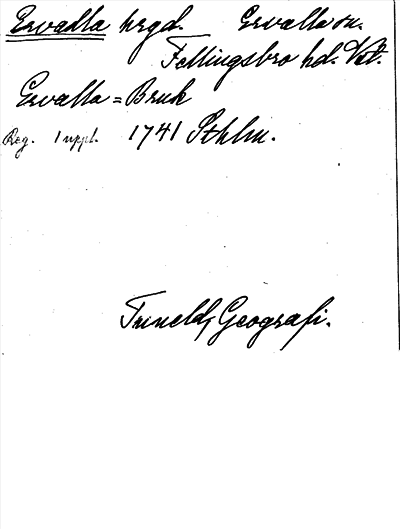 Ervalla hrgd. Ervalla sn.
Fellingsbro hd. Vstl.
Ervalla = Bruk
Reg. 1 uppl. 1741 Sthlm.
Tuneld, Geografi.